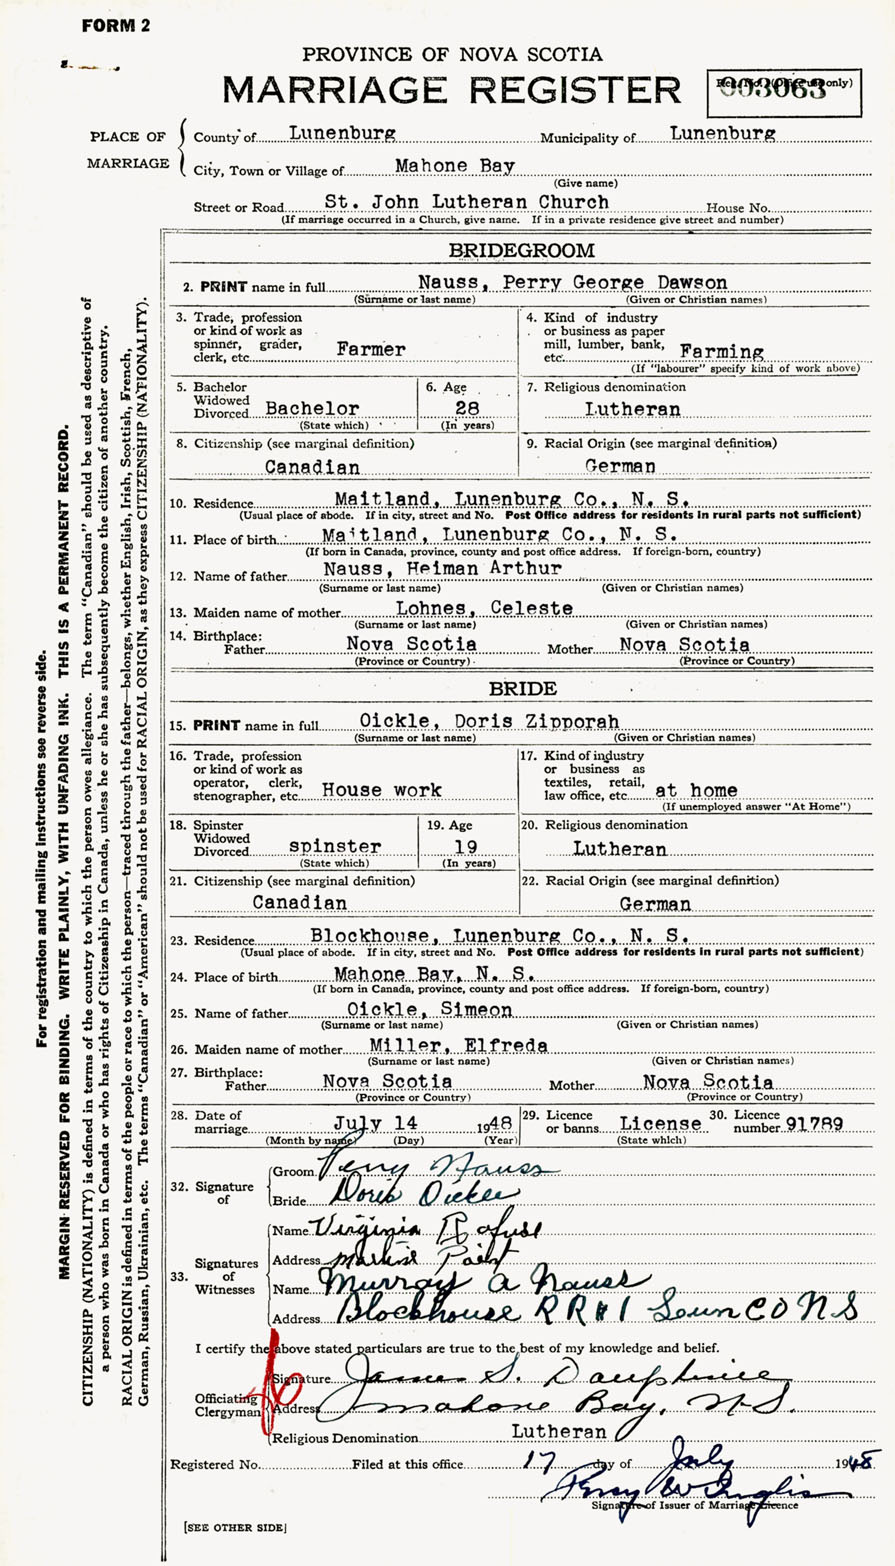 FORM 2
PROVINCE OF NOVA SCOTIA
MARRIAGE REGISTER
003063
PLACE OF MARRIAGE
County of Lunenburg Municipality of Lunenburg
City, Town or Village of Mahone Bay
(Give name)
Street or Road St. John Lutheran Church House No.
(If marriage occurred in a Church, give name. If in a private residence give street and number)
BRIDEGROOM
2. PRINT name in full Nauss, Perry George Dawson
(Surname or last name) (Given or Christian names)
3. Trade, profession
or kind of work as
spinner, grader,
clerk, etc. Farmer
4. Kind of industry
or business as paper
mill, lumber, bank,
etc. Farming
(If "labourer" specify kind of work above)
5. Bachelor
Widowed
Divorced Bachelor
(State which)
6. Age
28
(In years)
7. Religious denomination
Lutheran
8. Citizenship (see marginal definition)
Canadian
9. Racial Origin (see marginal definition)
German
10. Residence Maitland, Lunenburg Co., N. S.
(Usual place of abode. If in city, street and No. Post Office address for residents in rural parts not sufficient)
11. Place of birth Maitland, Lunenburg Co., N. S.
(If born in Canada, province, county and post office address. If foreign-born, country)
12. Name of father Nauss, Heiman Arthur
(Surname or last name) (Given or Christian names)
13. Maiden name of mother Lohnes, Celeste
(Surname or last name) (Given or Christian names)
14. Birthplace:
Father Nova Scotia Mother Nova Scotia
(Province or Country) (Province or Country)
BRIDE
15. PRINT name in full Oickle, Doris Zipporah
(Surname or last name) (Given or Christian names)
16. Trade, profession
or kind of work as
operator, clerk,
stenographer, etc. House work
17. Kind of industry
or business as
textiles, retail,
law office, etc. at home
(If unemployed answer "At Home")
18. Spinster
Widowed
Divorced spinster
(State which)
19. Age
19
(In years)
20. Religious denomination
Lutheran
21. Citizenship (see marginal definition)
Canadian
22. Racial Origin (see marginal definition)
German
23. Residence Blockhouse, Lunenburg Co., N. S.
(Usual place of abode. If in city, street and No. Post Office address for residents in rural parts not sufficient)
24. Place of birth Mahone Bay, N. S.
(If born in Canada, province, county and post office address. If foreign-born, country)
25. Name of father Oickle, Simeon
(Surname or last name) (Given or Christian names)
26. Maiden name of mother Miller, Elfreda
(Surname or last name) (Given or Christian names)
27. Birthplace:
Father Nova Scotia Mother Nova Scotia
(Province or Country) (Province or Country)
28. Date of
marriage July 14 1948
(Month by name) (Day) (Year)
29. Licence
or banns License
(State which)
30. Licence
number 91789
32. Signature of
Groom Perry Nauss
Bride Doris Oickle
33. Signatures of Witnesses
Name Virginia Rafuse
Address Martins Point
Name Murray A Nauss
Address Blockhouse R R # 1 Lun CO N S
I certify the above stated particulars are true to the best of my knowledge and belief.
Officiating Clergyman
Signature James S. Dauphinee
Address Mahone Bay, N.S.
Religious Denomination Lutheran
Registered No. Filed at this office 17 day of July 1948
Perry W Inglis
Signature of Issuer of Marriage Licence
[SEE OTHER SIDE]
For registration and mailing instructions see reverse side.
MARGIN RESERVED FOR BINDING. WRITE PLAINLY, WITH UNFADING INK. THIS IS A PERMANENT RECORD.
CITIZENSHIP (NATIONALITY) is defined in terms of the country to which the person owes allegiance. The term "Canadian" should be used as descriptive of
a person who was born in Canada or who has rights of Citizenship in Canada, unless he or she has subsequently become the citizen of another country.
RACIAL ORIGIN is defined in terms of the people or race to which the person—traced through the father—belongs, whether English, Irish, Scottish, French,
German, Russian, Ukrainian, etc. The terms "Canadian" or "American" should not be used for RACIAL ORIGIN, as they express CITIZENSHIP (NATIONALITY).